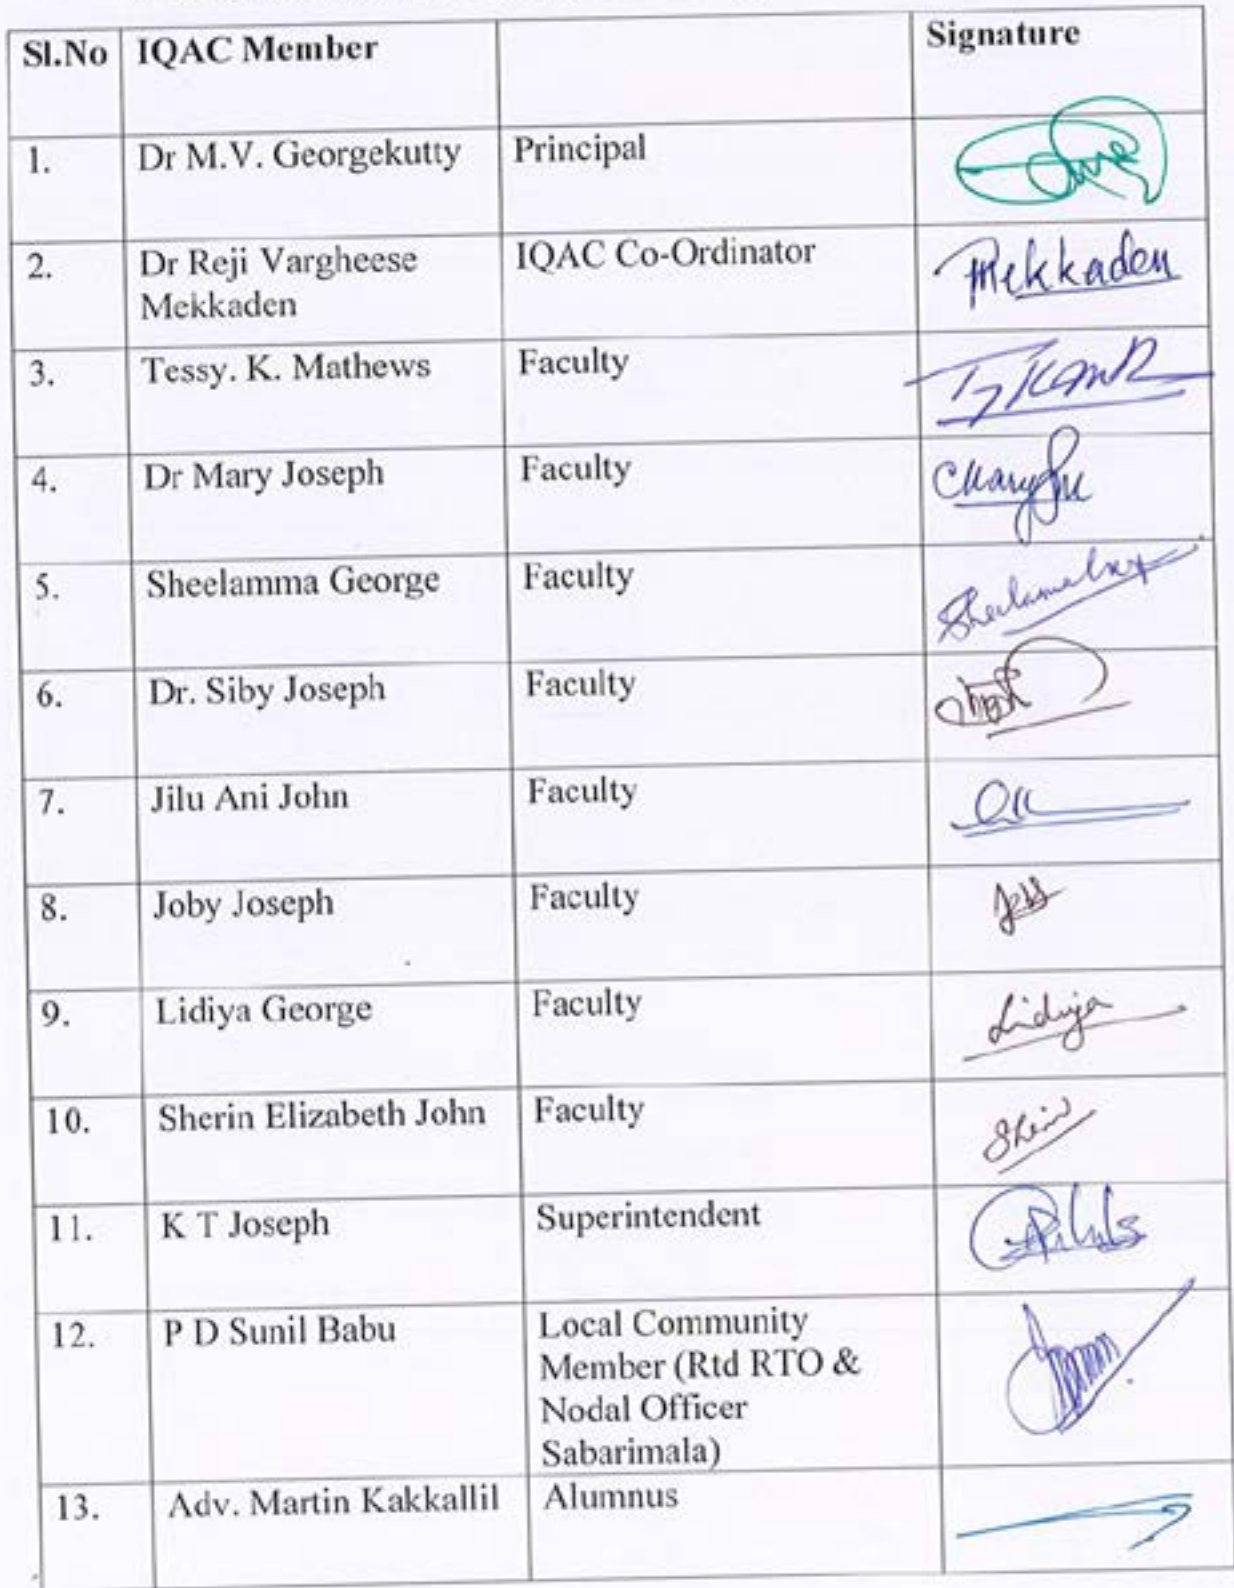 Sl.No IQAC Member Signature
1. Dr M.V. Georgekutty Principal
2. Dr Reji Vargheese IQAC Co-Ordinator Mekkaden
Mekkaden
3. Tessy. K. Mathews Faculty
4. Dr Mary Joseph Faculty
5. Sheelamma George Faculty
6. Dr. Siby Joseph Faculty
7. Jilu Ani John Faculty
8. Joby Joseph Faculty
9. Lidiya George Faculty Lidiya
10. Sherin Elizabeth John Faculty
11. K T Joseph Superintendent
12. P D Sunil Babu Local Community
Member (Rtd RTO &
Nodal Officer
Sabarimala)
13. Adv. Martin Kakkallil Alumnus